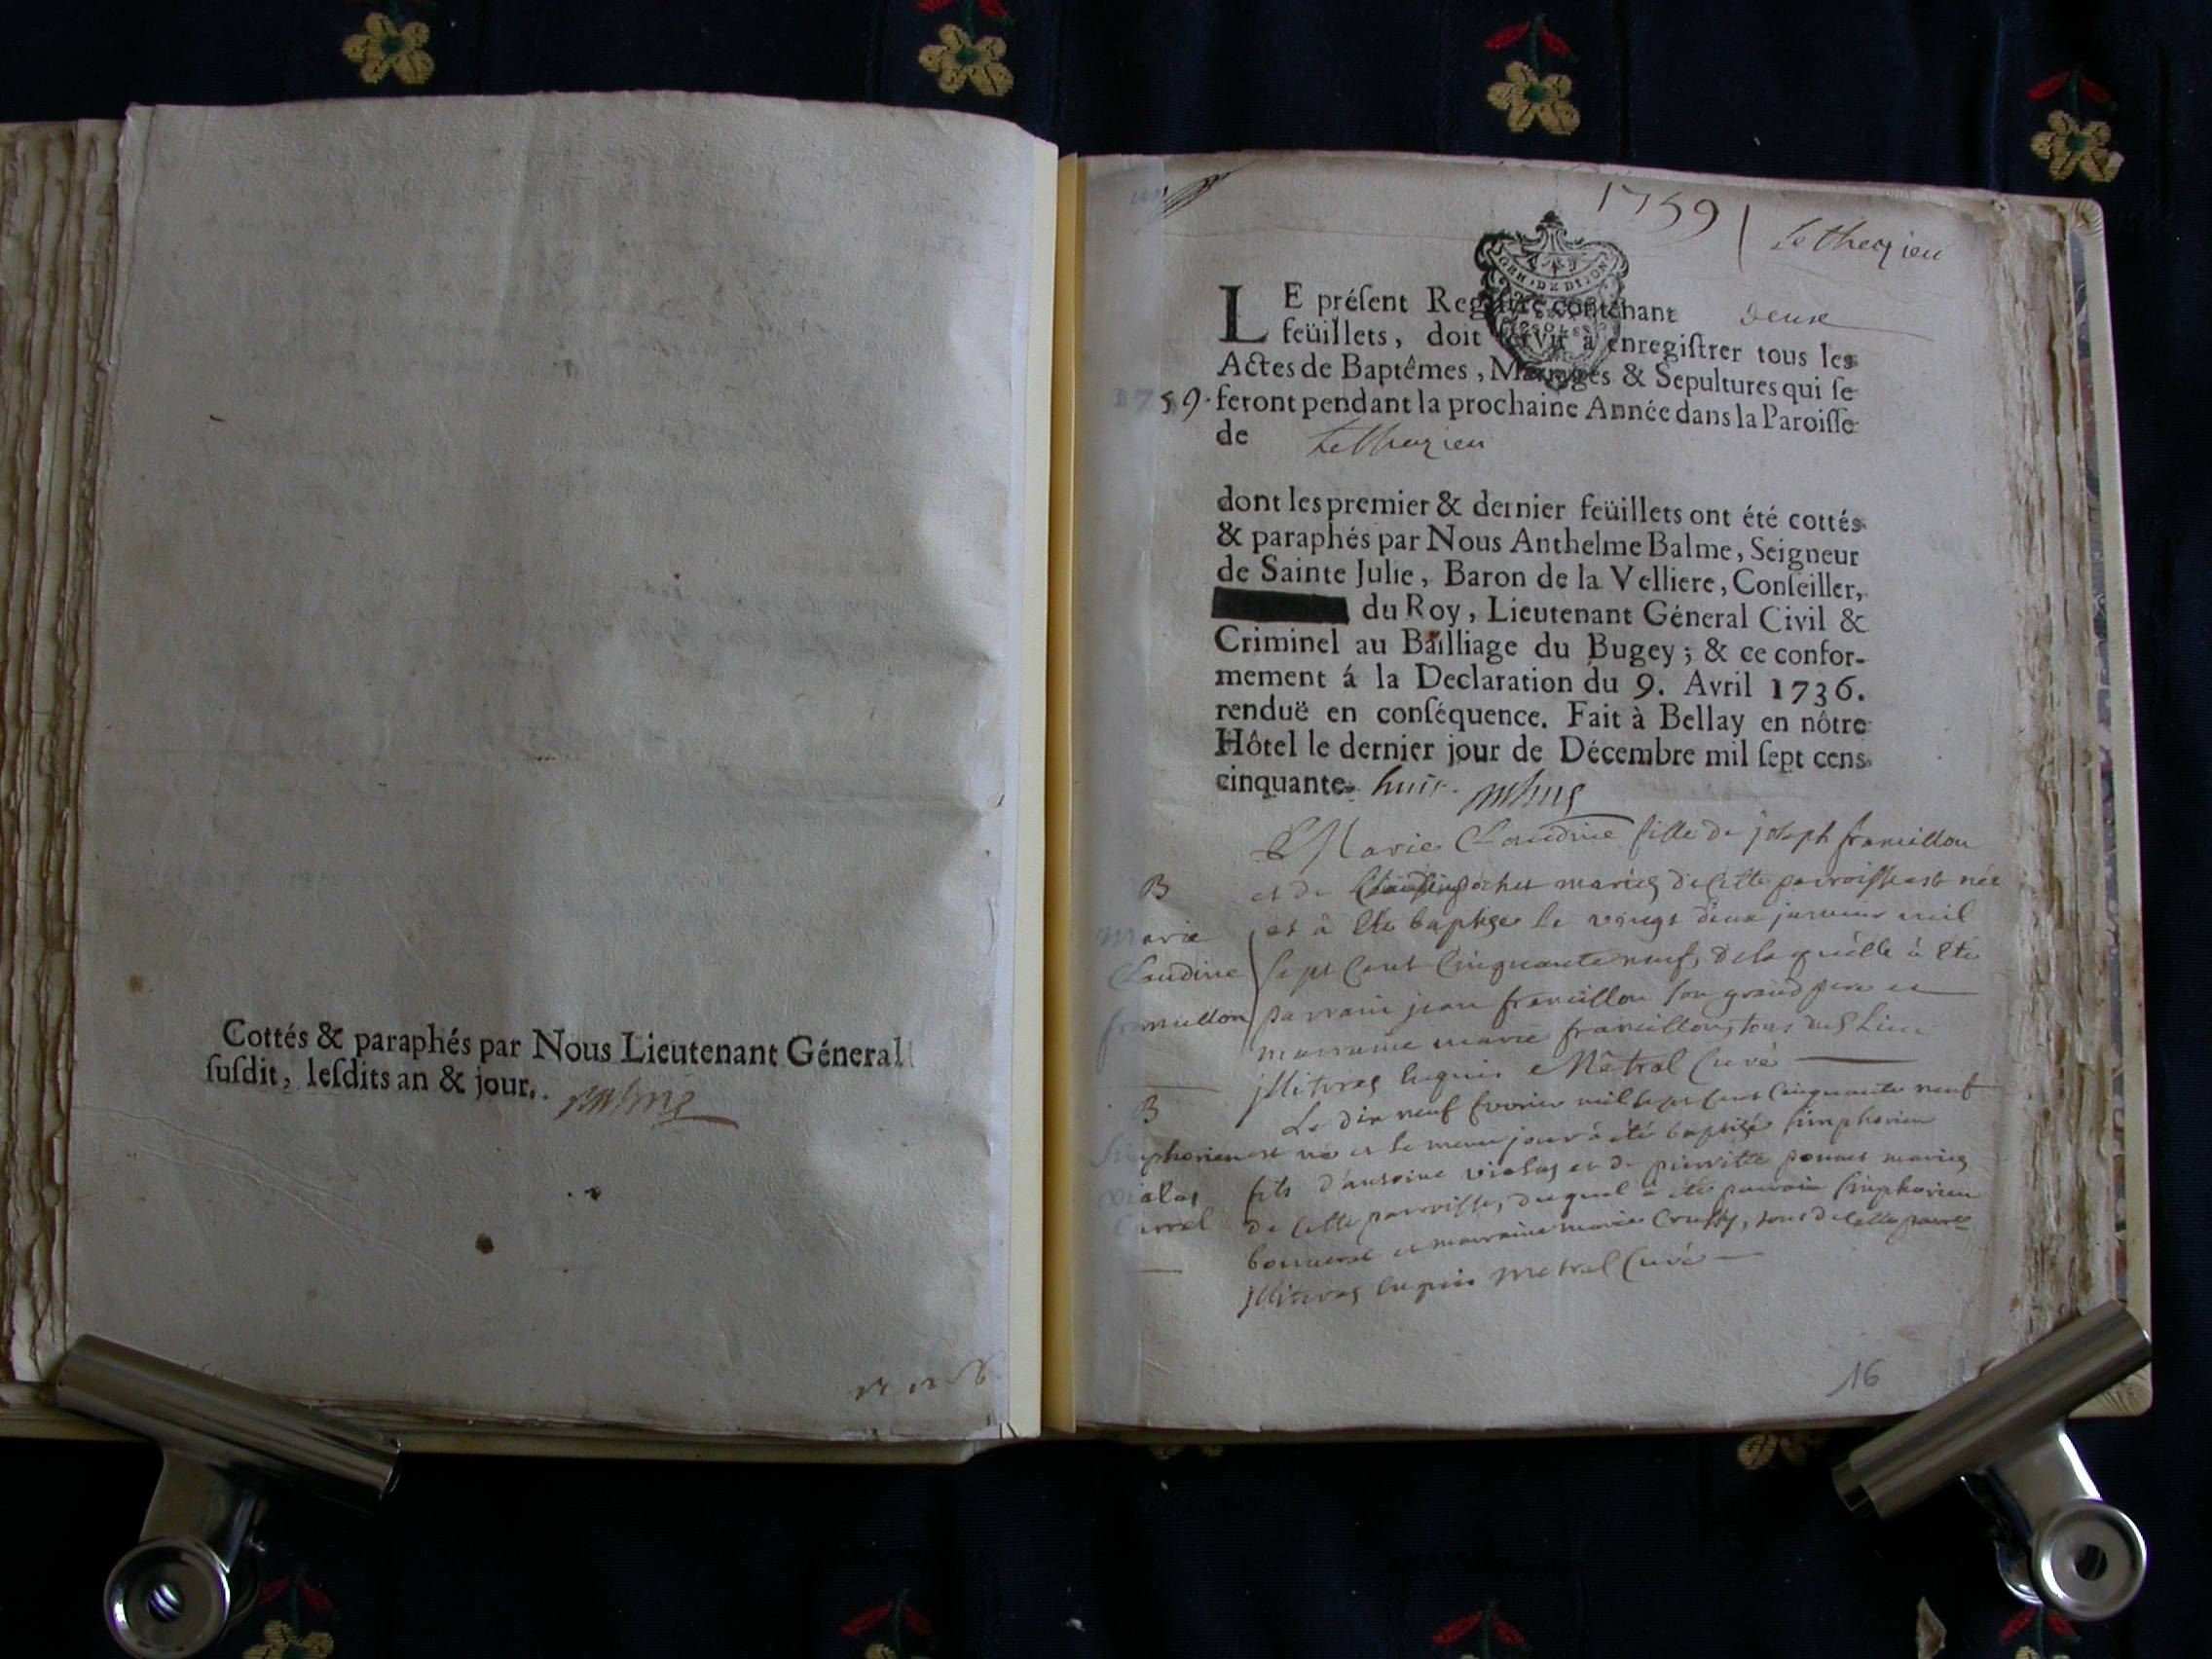 Cottés & paraphés par Nous Lieutenant Géneral
ſuſdit, leſdits an & jour.
Balme
1759
Lethezieu
GEN. DE DIJON
LE préſent Regiſtre contenant deux
feüillets, doit ſervir à enregiſtrer tous les
Actes de Baptêmes, Mariages & Sepultures qui ſe
1759. feront pendant la prochaine Année dans la Paroiſſe
de Lethezieu
dont les premier & dernier feüillets ont été cottés
& paraphés par Nous Anthelme Balme, Seigneur
de Sainte Julie, Baron de la Velliere, Conſeiller,
du Roy, Lieutenant Géneral Civil &
Criminel au Bailliage du Bugey; & ce confor-
mement á la Declaration du 9. Avril 1736.
renduë en conſéquence. Fait à Bellay en nôtre
Hôtel le dernier jour de Décembre mil ſept cens
cinquante huit. Balme
Marie Claudine fille de joseph framillon
B
et de pochet mariés de cette parroisse est née
Marie
et à été baptisée le vingt deux janvier mil
Claudine
sept cent cinquante neuf, de laquelle à été
framillon
parrain jean framillon son grand pere et
marraine marie framillon, tous dud lieu
illiteres enquis Mêtral Curé
B
Le dix neuf fevrier mil sept cent cinquante neuf
Simphorien
est né et le meme jour à été baptisé simphorien
violas
fils d'antoine violas et de pierrette ponnet mariés
de cette parroisse, duquel à été parrain simphorien
et marraine marie tous de cette parre
illiteres enquis metral Curé
16